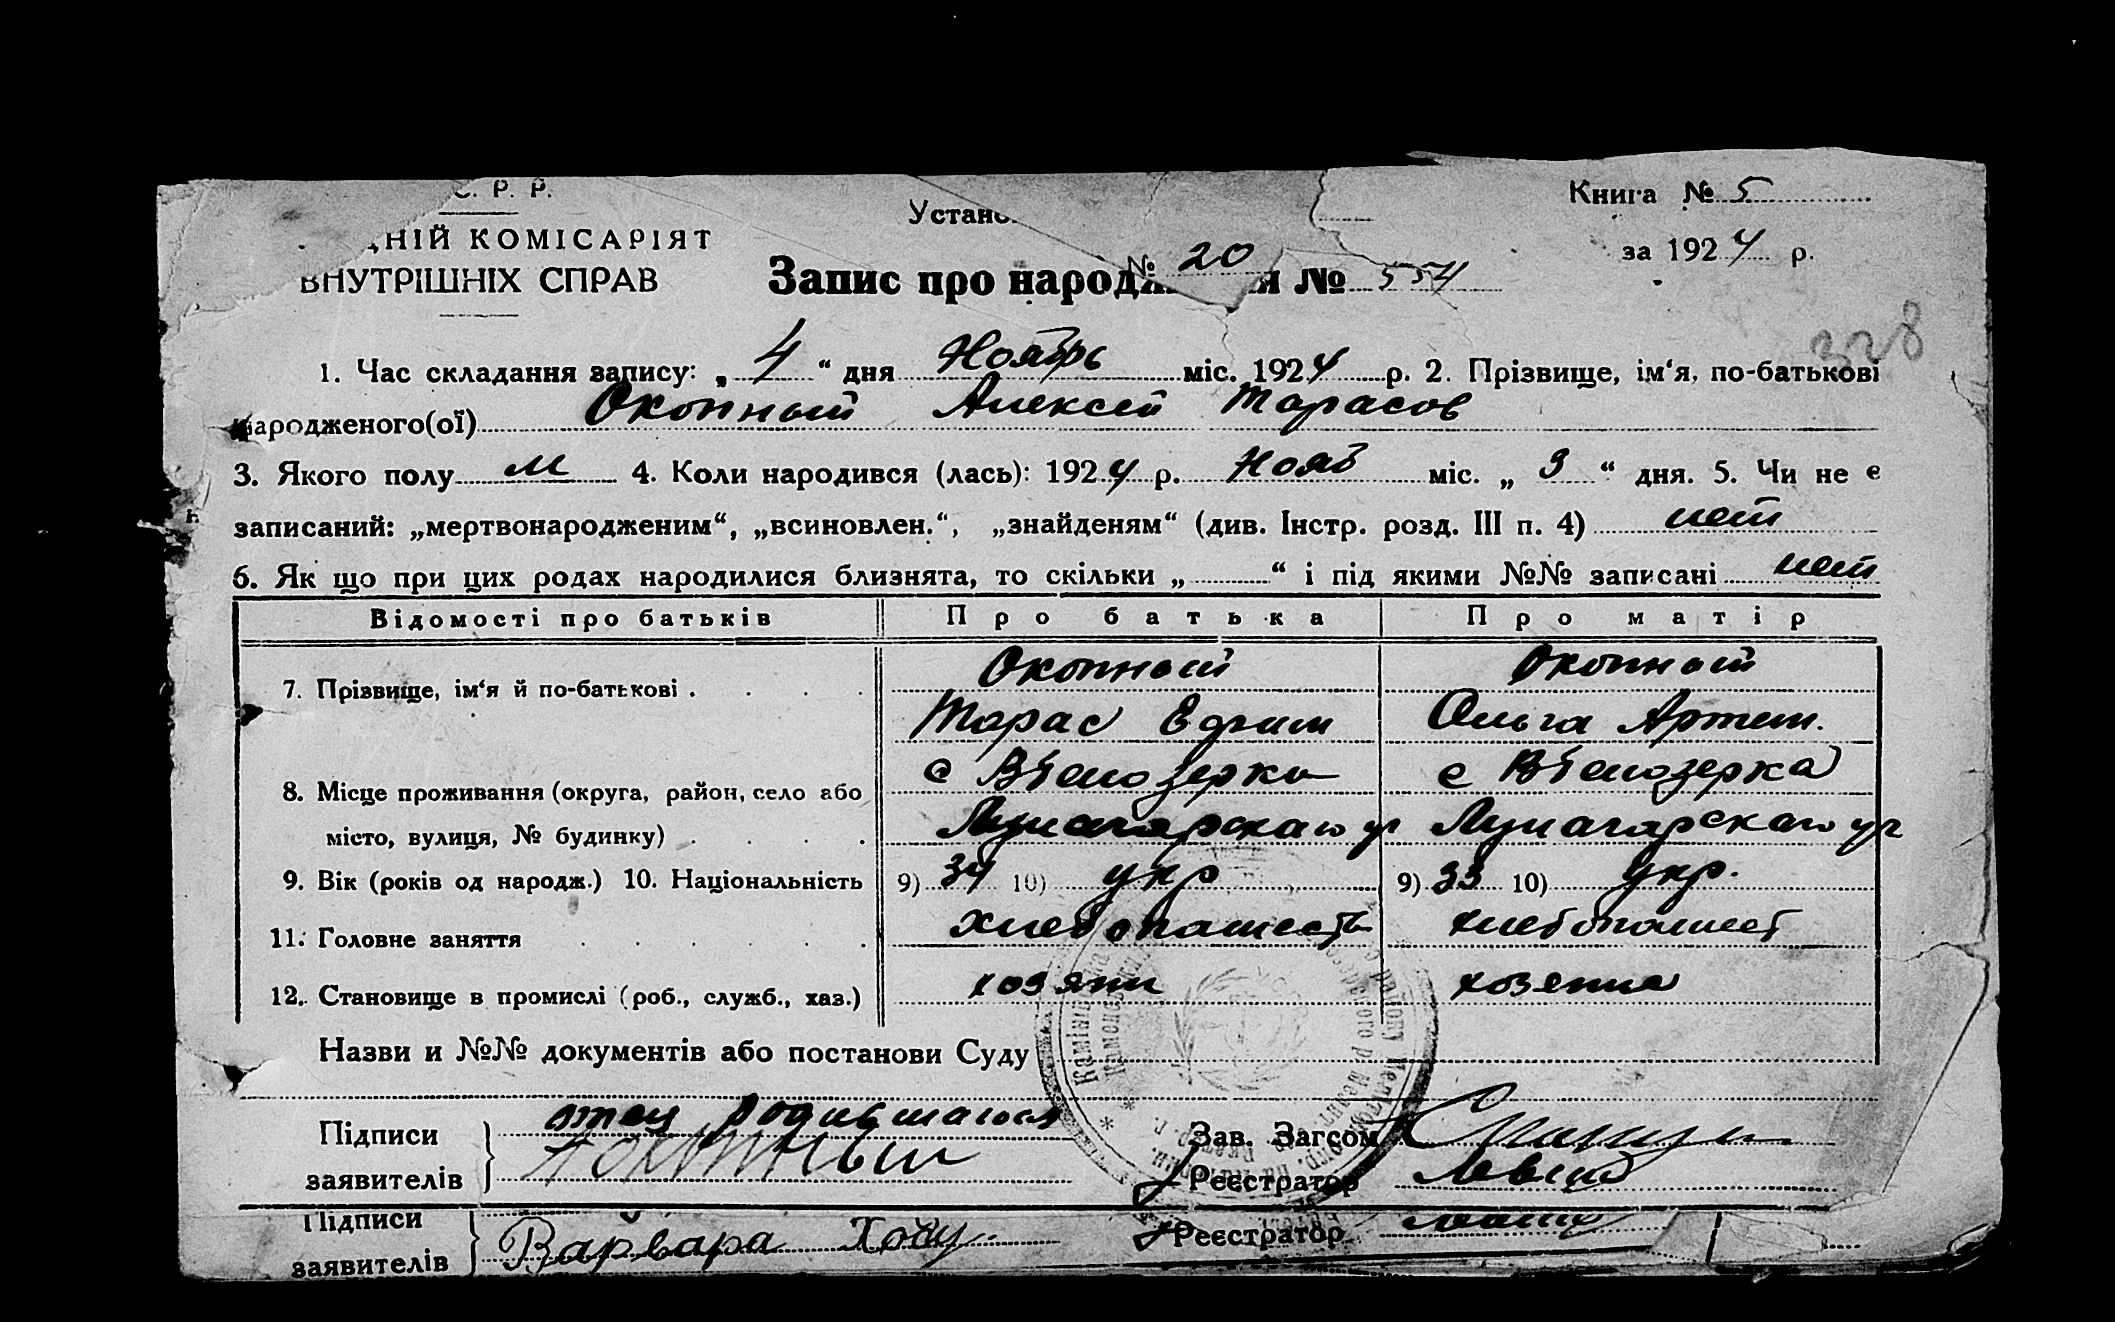 С. Р. Р.
ДНІЙ КОМІСАРІЯТ
ВНУТРІШНІХ СПРАВ
Устано
Книга № 5
за 1924 р.
№ 20
Запис про народж я № 554
328
1. Час складання запису: „ 4 “ дня Ноябрь міс. 1924 р. 2. Прізвище, ім‘я, по-батькові
народженого(ої) Окопный Алексей Тарасов
3. Якого полу м 4. Коли народився (лась): 1924 р. Нояб міс. „ 3 “ дня. 5. Чи не є
записаний: „мертвонародженим“, „всиновлен.“, „знайденям“ (див. Інстр. розд. III п. 4) нет
6. Як що при цих родах народилися близнята, то скільки „ “ і під якими №№ записані нет
Відомості про батьків Про батька Про матір
7. Прізвище, ім‘я й по-батькові . Окопный Окопный
Тарас Ефим Ольга Артем.
8. Місце проживання (округа, район, село або с Белозерка с Белозерка
місто, вулиця, № будинку)
9. Вік (років од народж.) 10. Національність 9) 34 10) укр 9) 33 10) Укр.
11. Головне заняття хлебопашест хлебопашест
12. Становище в промислі (роб., служб., хаз.) хозяин
Назви и №№ документів або постанови Суду
Підписи отец родившагося Зав. Загсом
заявителів Реєстратор
Підписи
заявителів Варвара Реєстратор